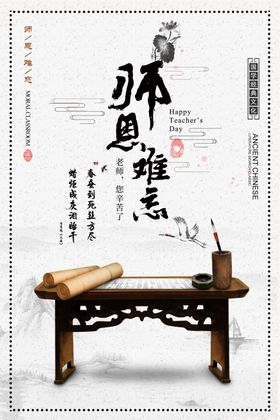 师恩难忘
师恩难忘
MORAL CLASSROOM
Happy
Teacher's
Day
老师,您辛苦了
春蚕到死丝方尽
蜡炬成灰泪始干
国学经典文化
ANCIENT CHINESE